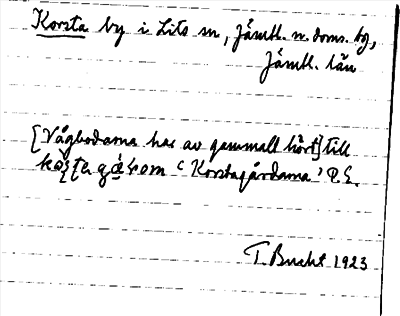 Korsta by i Lits sn, Jämtl. n. doms. bg,
Jämtl. län
[Vågbodarna har av gammalt hört] till
‘Korstagårdarna’ P.E.
T. Bucht 1923